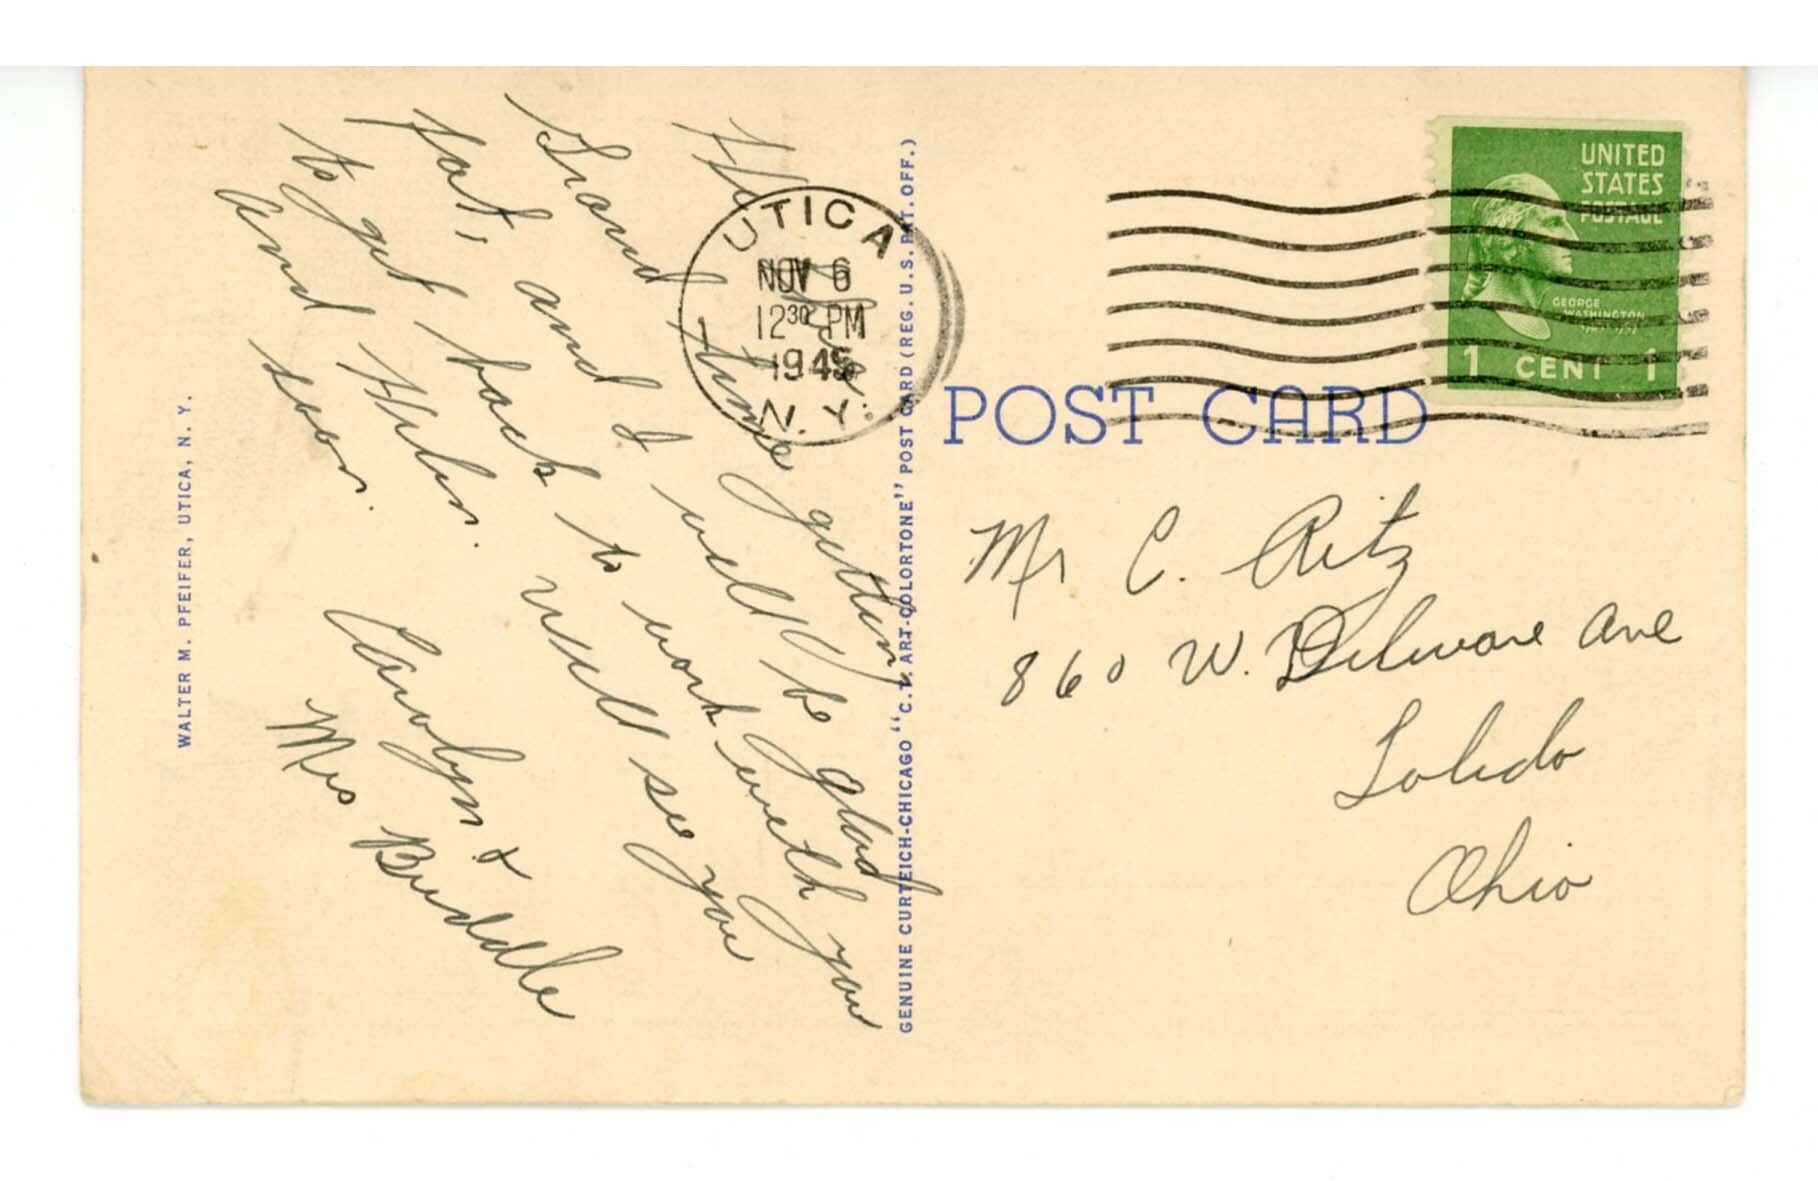 Hi
Grand time getting
fat, and I will be glad
to get back to work with you
and Helen. Will see you
soon.
Carolyn &
Mrs Buddle
UTICA
NOV 6
12 30 PM
1945
N. Y.
UNITED
STATES
POSTAGE
GEORGE
WASHINGTON
1 CENT 1
POST CARD
Mr C. Ritz
860 W. Delware Ave
Toledo
Ohio
WALTER M. PFEIFER, UTICA, N. Y.
GENUINE CURTEICH-CHICAGO "C.T. ART-COLORTONE" POST CARD (REG. U.S. PAT. OFF.)